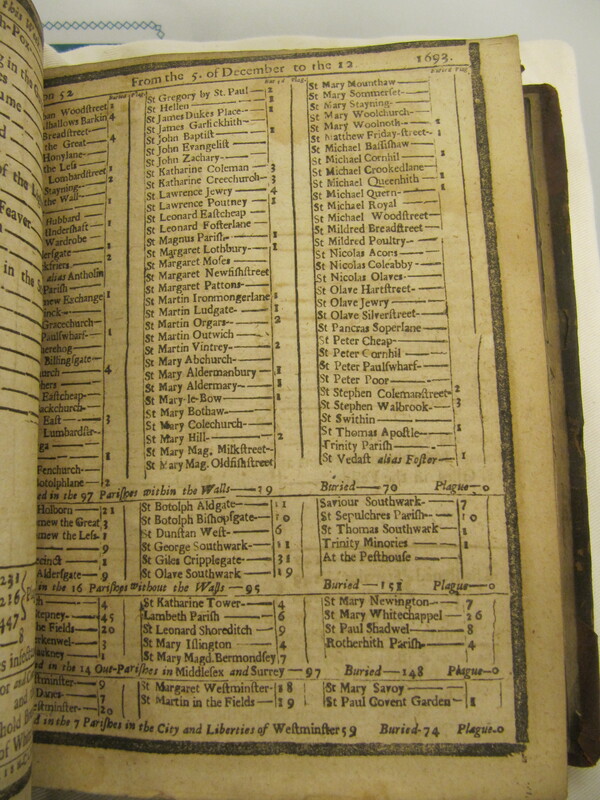 From the 5. of December to the 12. 1693.
on 52
Buried Plag.
an Woodstreet 1
lhallows Barkin 4
Breadstreet—
the Great— 4
Honylane—
the Less—
Lombardstreet 1
Stayning—
the Wall—
Hubbard
Undershaft 1
Wardrobe
dersgate—2
ckfriers
alias Antholin
Parish—
new Exchange 1
inck—
Gracechurch—
Paulswharf— 1
herehog
Billingsgate—
urch— 4
Eastcheap—
uckchurch—
East— 3
Lumbardstr-
Fenchurch— 1
Botolphlane— 2
St Gregory by St. Paul— 2
St Hellen— 1
St James Dukes Place—
St James Garlickhith—
St John Baptist— 1
St John Evangelist—
St John Zachary—
St Katharine Coleman— 3
St Katharine Creechurch— 3
St Lawrence Jewry— 4
St Lawrence Poutney— 1
St Leonard Eastcheap
St Leonard Fosterlane
St Magnus Parish— 1
St Margaret Lothbury— 1
St Margaret Moses—
St Margaret Newfishstreet
St Margaret Pattons—
St Martin Ironmongerlane 1
St Martin Ludgate— 1
St Martin Orgars— 2
St Martin Outwich—
St Martin Vintrey— 2
St Mary Abchurch—
St Mary Aldermanbury— 1
St Mary Aldermary— 1
St Mary-le-Bow— 1
St Mary Bothaw—
St Mary Colechurch—
St Mary Hill— 2
St Mary Mag. Milkstreet—
St Mary Mag. Oldfishstreet
St Mary Mounthaw—
St Mary Sommerset—
St Mary Stayning—
St Mary Woolchurch—
St Mary Woolnoth—
St Matthew Friday-street— 1
St Michael Bassishaw—
St Michael Cornhil— 1
St Michael Crookedlane—
St Michael Queenhith— 1
St Michael Quern— 1
St Michael Royal
St Michael Woodstreet—
St Mildred Breadstreet—
St Mildred Poultry—
St Nicolas Acons—
St Nicolas Coleabby—
St Nicolas Olaves—
St Olave Hartstreet—
St Olave Jewry—
St Olave Silverstreet—
St Pancras Soperlane—
St Peter Cheap—
St Peter Cornhil—
St Peter Paulswharf—
St Peter Poor—
St Stephen Colemanstreet— 2
St Stephen Walbrook— 3
St Swithin—
St Thomas Apostle— 1
Trinity Parish—
St Vedast alias Foster— 1
ed in the 97 Parishes within the Walls—79 Buried—70 Plague—0
Holborn— 21
hnew the Great 3
hnew the Less 1
— 9
ecinct— 1
Aldersgate— 9
St Botolph Aldgate— 11
St Botolph Bishopsgate— 10
St Dunstan West— 6
St George Southwark— 11
St Giles Cripplegate— 31
St Olave Southwark— 19
Saviour Southwark— 7
St Sepulchres Parish— 10
St Thomas Southwark— 1
Trinity Minories— 1
At the Pesthouse—
in the 16 Parishes without the Walls—95 Buried—151 Plague—0
h— 4
Stepney— 45
he Fields— 20
erkenwel— 3
ackney— 1
St Katharine Tower— 4
Lambeth Parish— 6
St Leonard Shoreditch— 9
St Mary Islington— 4
St Mary Magd. Bermondsey 7
St Mary Newington— 7
St Mary Whitechappel— 26
St Paul Shadwel— 8
Rotherhith Parish— 4
ed in the 14 Out-Parishes in Middlesex and Surrey—97 Buried—148 Plague—0
stminster— 9
Danes— 7
estminster— 20
St Margaret Westminster— 18
St Martin in the Fields— 19
St Mary Savoy—
St Paul Covent Garden— 1
d in the 7 Parishes in the City and Liberties of Westminster 59 Buried-74 Plague-0